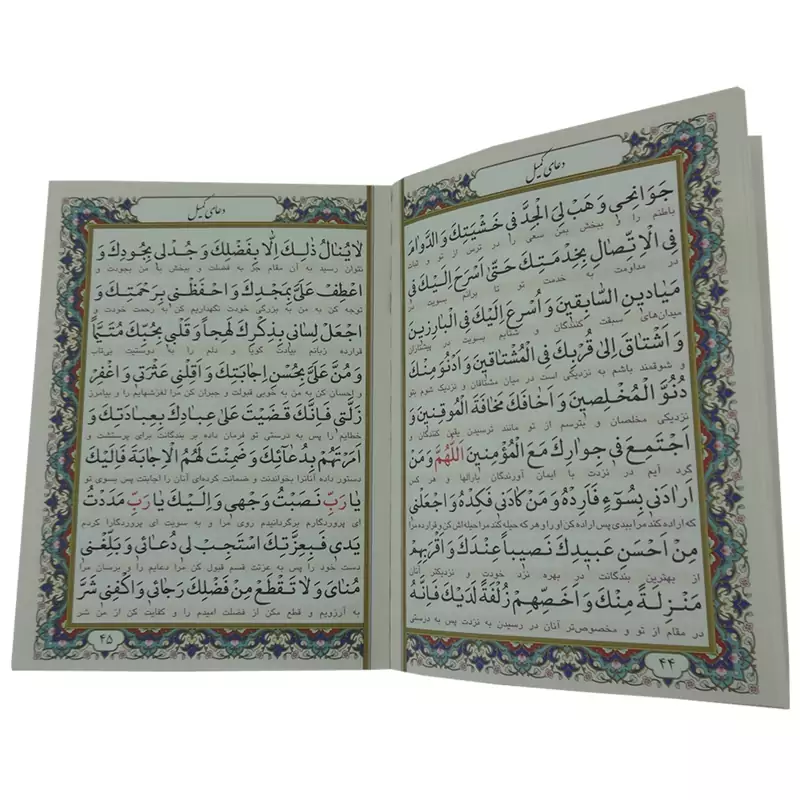 دعای کمیل
جَوَانِحِي وَ هَبْ لِيَ الْجِدَّ فِي خَشْيَتِكَ وَ الدَّوَامَ
باطنم را و ببخش بمن سعی را در ترس از تو و ثبات
فِي الْاِتِّصَالِ بِخِدْمَتِكَ حَتّىٰ اَسْرَحَ اِلَيْكَ فِي
در مداومت به خدمت تو تا برانم بسویت در
مَيَادِينِ السَّابِقِينَ وَ اُسْرِعَ اِلَيْكَ فِي الْبَارِزِينَ
میدان‌های سبقت کنندگان و شتابم بسویت در پیشتازان
وَ اَشْتَاقَ اِلىٰ قُرْبِكَ فِي الْمُشْتَاقِينَ وَ اَدْنُوَ مِنْكَ
و شوقمند باشم به نزدیکی است در میان مشتاقان و نزدیک شوم بتو
دُنُوَّ الْمُخْلِصِينَ وَ اَخَافَكَ مَخَافَةَ الْمُوقِنِينَ وَ
نزدیکی مخلصان و بترسم از تو مانند ترسیدن یقین کنندگان و
اَجْتَمِعَ فِي جِوَارِكَ مَعَ الْمُؤْمِنِينَ اَللّٰهُمَّ وَ مَنْ
گرد آیم در نزدت با ایمان آورندگان بارالها و هر کس
اَرَادَنِي بِسُوۤءٍ فَاَرِدْهُ وَ مَنْ كَادَنِي فَكِدْهُ وَ اجْعَلْنِي
که اراده کند مرا ببدی پس اراده کن او را و هر که حیله کند مرا حیله اش کن و قرار ده مرا
مِنْ اَحْسَنِ عَبِيدِكَ نَصِيباً عِنْدَكَ وَ اَقْرَبِهِمْ
از بهترین بندگانت در بهره نزد خودت و نزدیکتر آنان
مَنْزِلَةً مِنْكَ وَ اَخَصِّهِمْ زُلْفَةً لَدَيْكَ فَاِنَّهُ
در مقام از تو و مخصوص‌تر آنان در رسیدن به نزدت پس به درستی
۴۴
دعای کمیل
لَا يُنَالُ ذٰلِكَ اِلَّا بِفَضْلِكَ وَ جُدْ لِي بِجُودِكَ وَ
نتوان رسید به آن مقام جز به فضلت و ببخش با من بجودت و
اعْطِفْ عَلَيَّ بِمَجْدِكَ وَ احْفَظْنِي بِرَحْمَتِكَ وَ
توجه کن به من به بزرگی خودت نگهداریم کن به رحمت خودت و
اجْعَلْ لِسَانِي بِذِكْرِكَ لَهِجاً وَ قَلْبِي بِحُبِّكَ مُتَيَّماً
قرارده زبانم بیادت گویا و دلم را به دوستیت بی‌تاب
وَ مُنَّ عَلَيَّ بِحُسْنِ اِجَابَتِكَ وَ اَقِلْنِي عَثْرَتِي وَ اغْفِرْ
و احسان کن به من به خوبی قبولت و جبران کن مرا لغزشهایم را و بیامرز
زَلَّتِي فَاِنَّكَ قَضَيْتَ عَلىٰ عِبَادِكَ بِعِبَادَتِكَ وَ
خطایم را پس به درستی تو فرمان داده بر بندگانت برای پرستشت و
اَمَرْتَهُمْ بِدُعَائِكَ وَ ضَمِنْتَ لَهُمُ الْاِجَابَةَ فَاِلَيْكَ
دستور داده آنانرا بخواندنت و ضمانت کرده‌ای آنان را اجابتت پس بسوی تو
يَا رَبِّ نَصَبْتُ وَجْهِي وَ اِلَيْكَ يَا رَبِّ مَدَدْتُ
ای پروردگارم برگردانیدم روی مرا و به سویت ای پروردگارا کردم
يَدِي فَبِعِزَّتِكَ اسْتَجِبْ لِي دُعَائِي وَ بَلِّغْنِي
دست خود را پس به عزتت قسم قبول کن مرا دعایم را و برسان مرا
مُنَايَ وَ لَا تَقْطَعْ مِنْ فَضْلِكَ رَجَائِي وَ اكْفِنِي شَرَّ
به آرزویم و قطع مکن از فضلت امیدم را و کفایت کن از من شر
۴۵